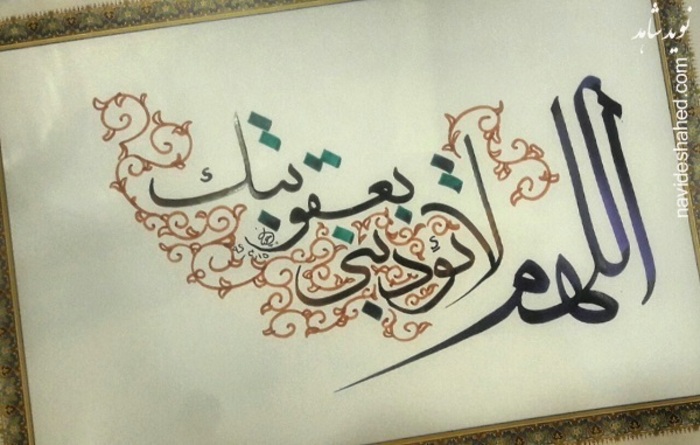 اللهم لا تؤدبنی بعقوبتك
نوید شاهد
navideshahed.com